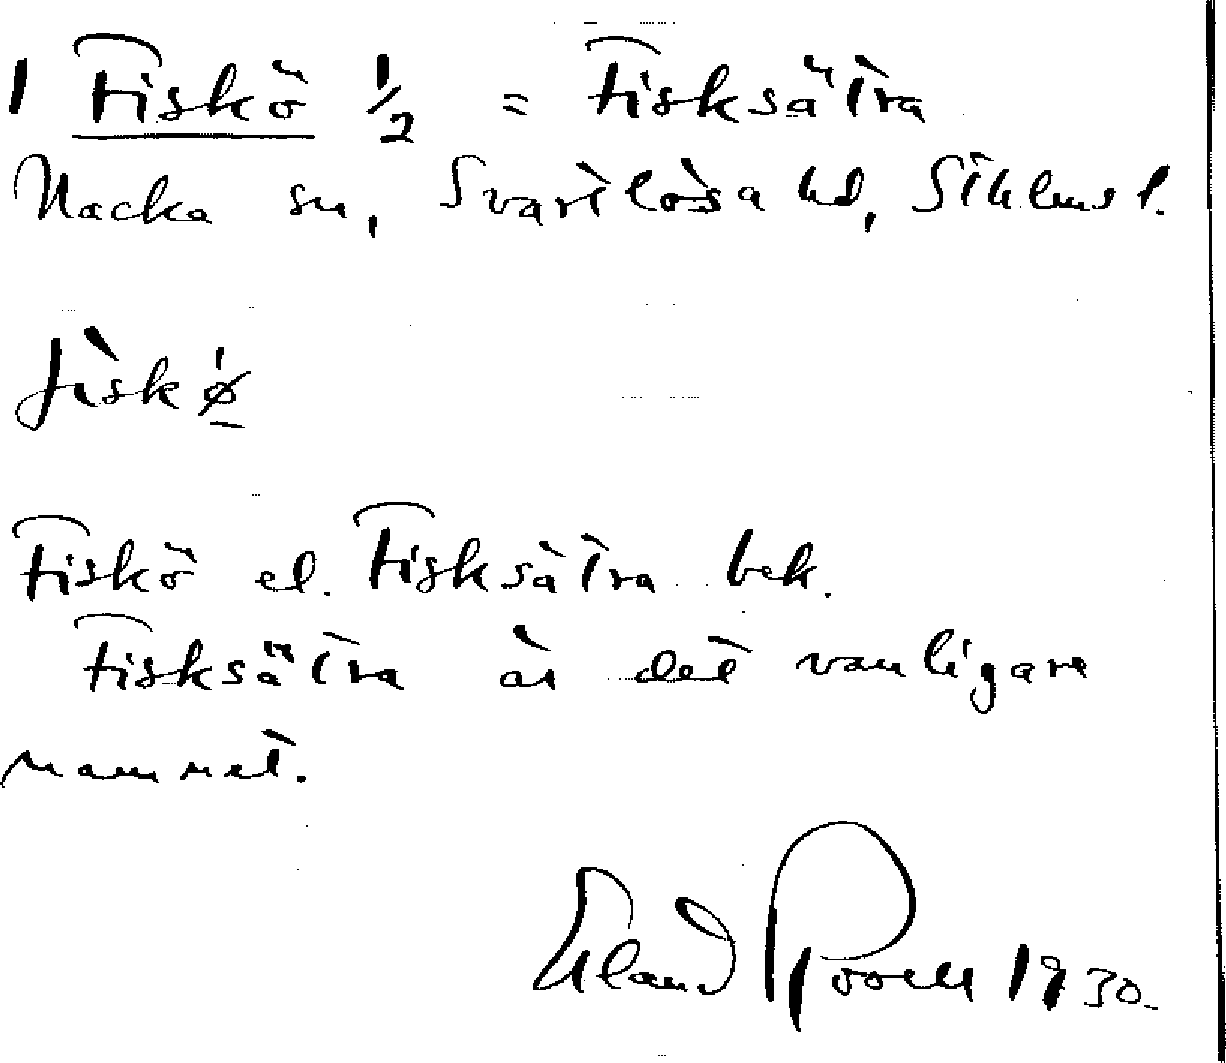 1 Fiskö 1/2 = Fisksätra
Nacka sn, Svartlösa hd, Sthlms l.
fiskǿ
Fiskö el. Fisksätra bek.
Fisksätra är det vanligare
namnet.
Erland Rosell 1930.